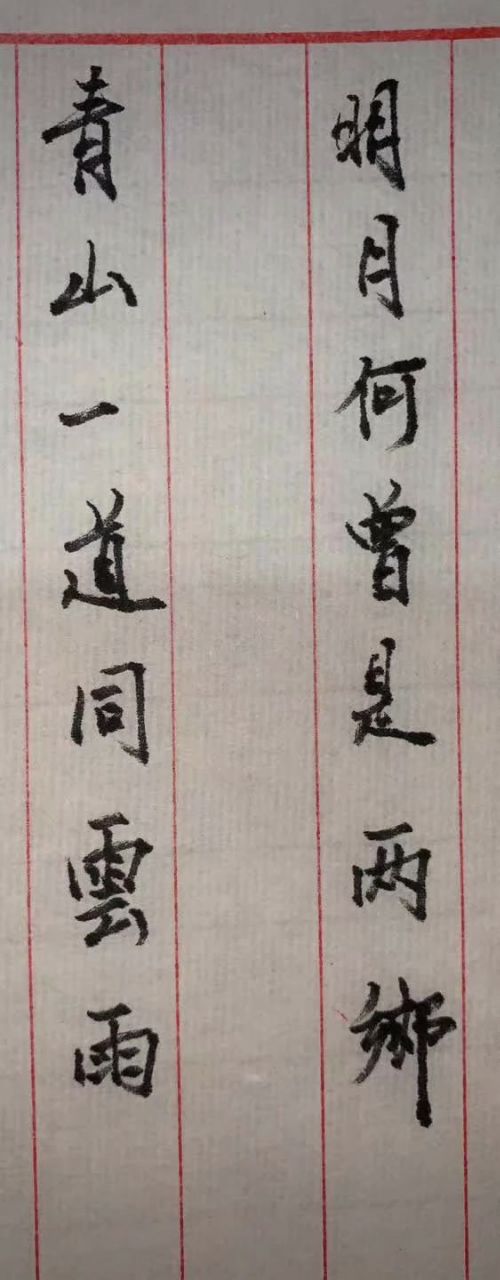 明月何曾是两鄉
青山一道同雲雨